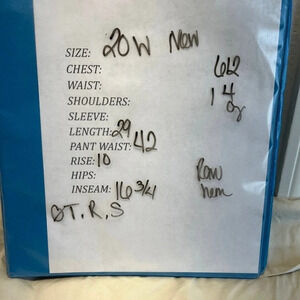 SIZE: 20W New
CHEST: 662
WAIST:
SHOULDERS: 14 oz
SLEEVE:
LENGTH: 29
PANT WAIST: 42
RISE: 10
HIPS: Raw
INSEAM: 16 3/4 hem
♡T, R, S